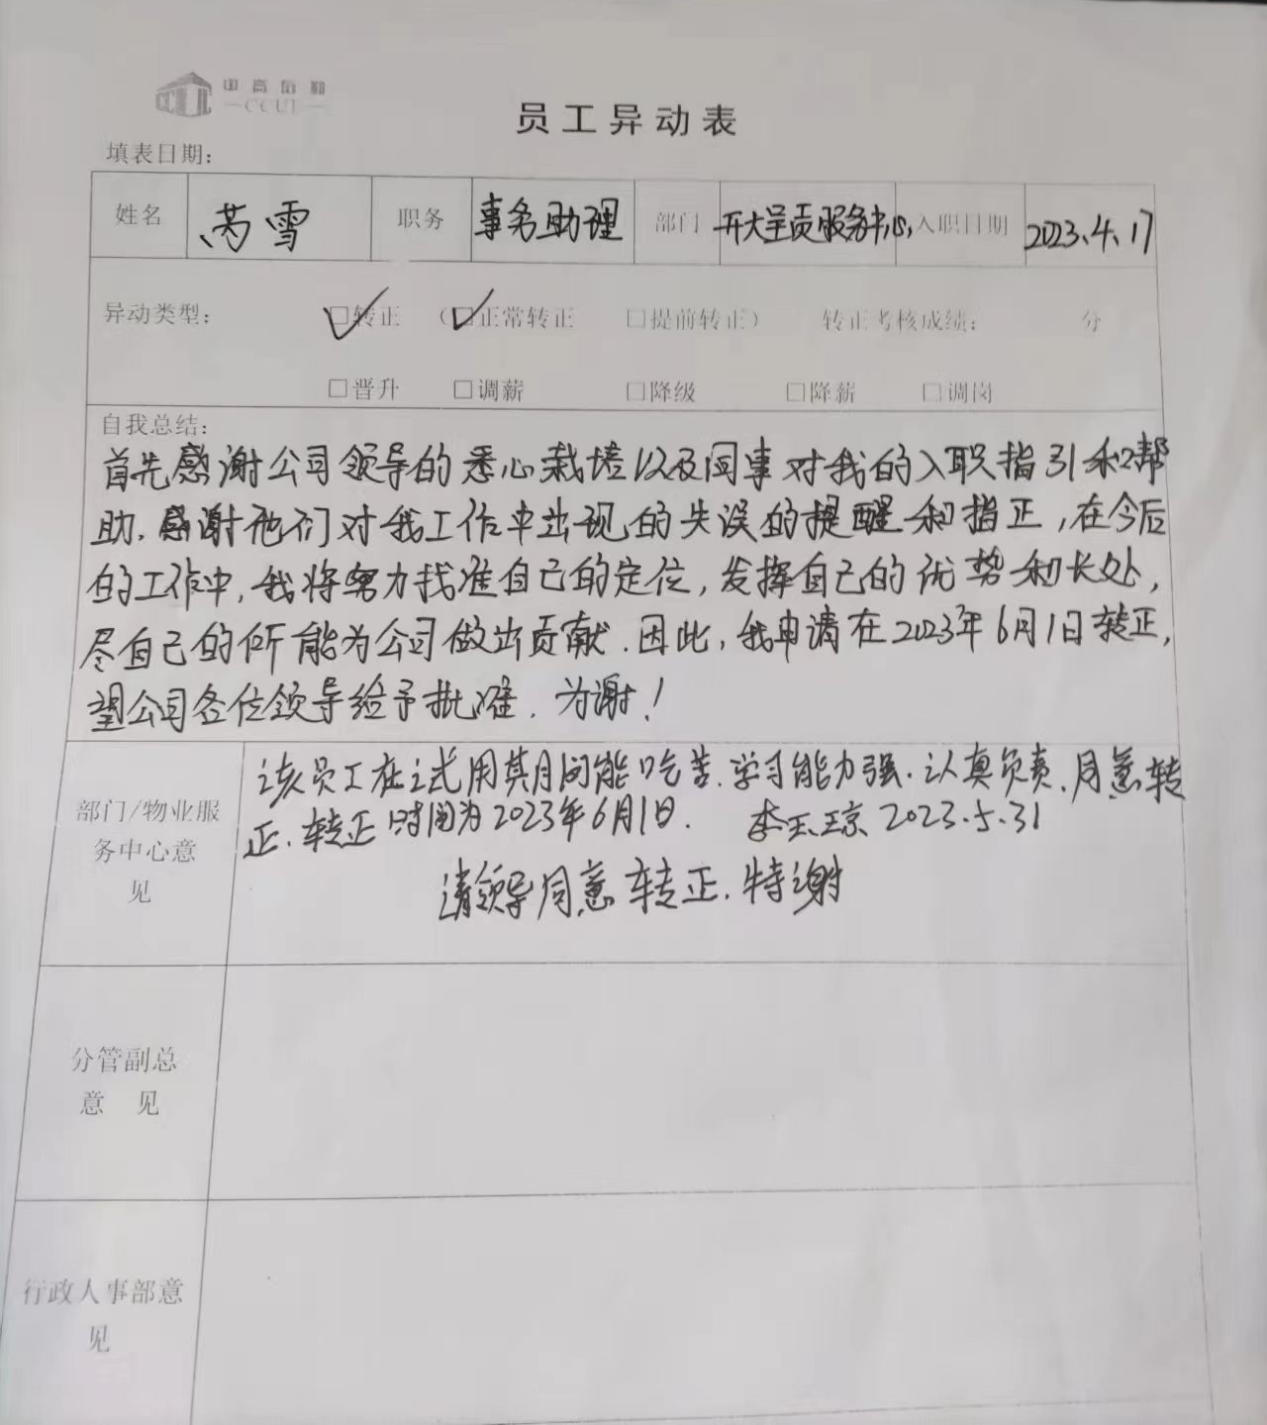 CCUL
员工异动表
填表日期：
姓名 芮雪 职务 事务助理 部门 开大呈贡服务中心 入职日期 2023.4.17
异动类型： □转正 （□正常转正 □提前转正） 转正考核成绩： 分
□晋升 □调薪 □降级 □降薪 □调岗
自我总结：
首先感谢公司领导的悉心栽培以及同事对我的入职指引和帮
助.感谢他们对我工作中出现的失误的提醒和指正,在今后
的工作中,我将努力找准自己的定位,发挥自己的优势和长处,
尽自己的所能为公司做出贡献.因此,我申请在2023年6月1日转正,
望公司各位领导给予批准.为谢!
该员工在试用其月间能吃苦.学习能力强.认真负责.同意转
正.转正时间为2023年6月1日. 李玉琼 2023.5.31
请领导同意转正.特谢
部门/物业服
务中心意
见
分管副总
意 见
行政人事部意
见